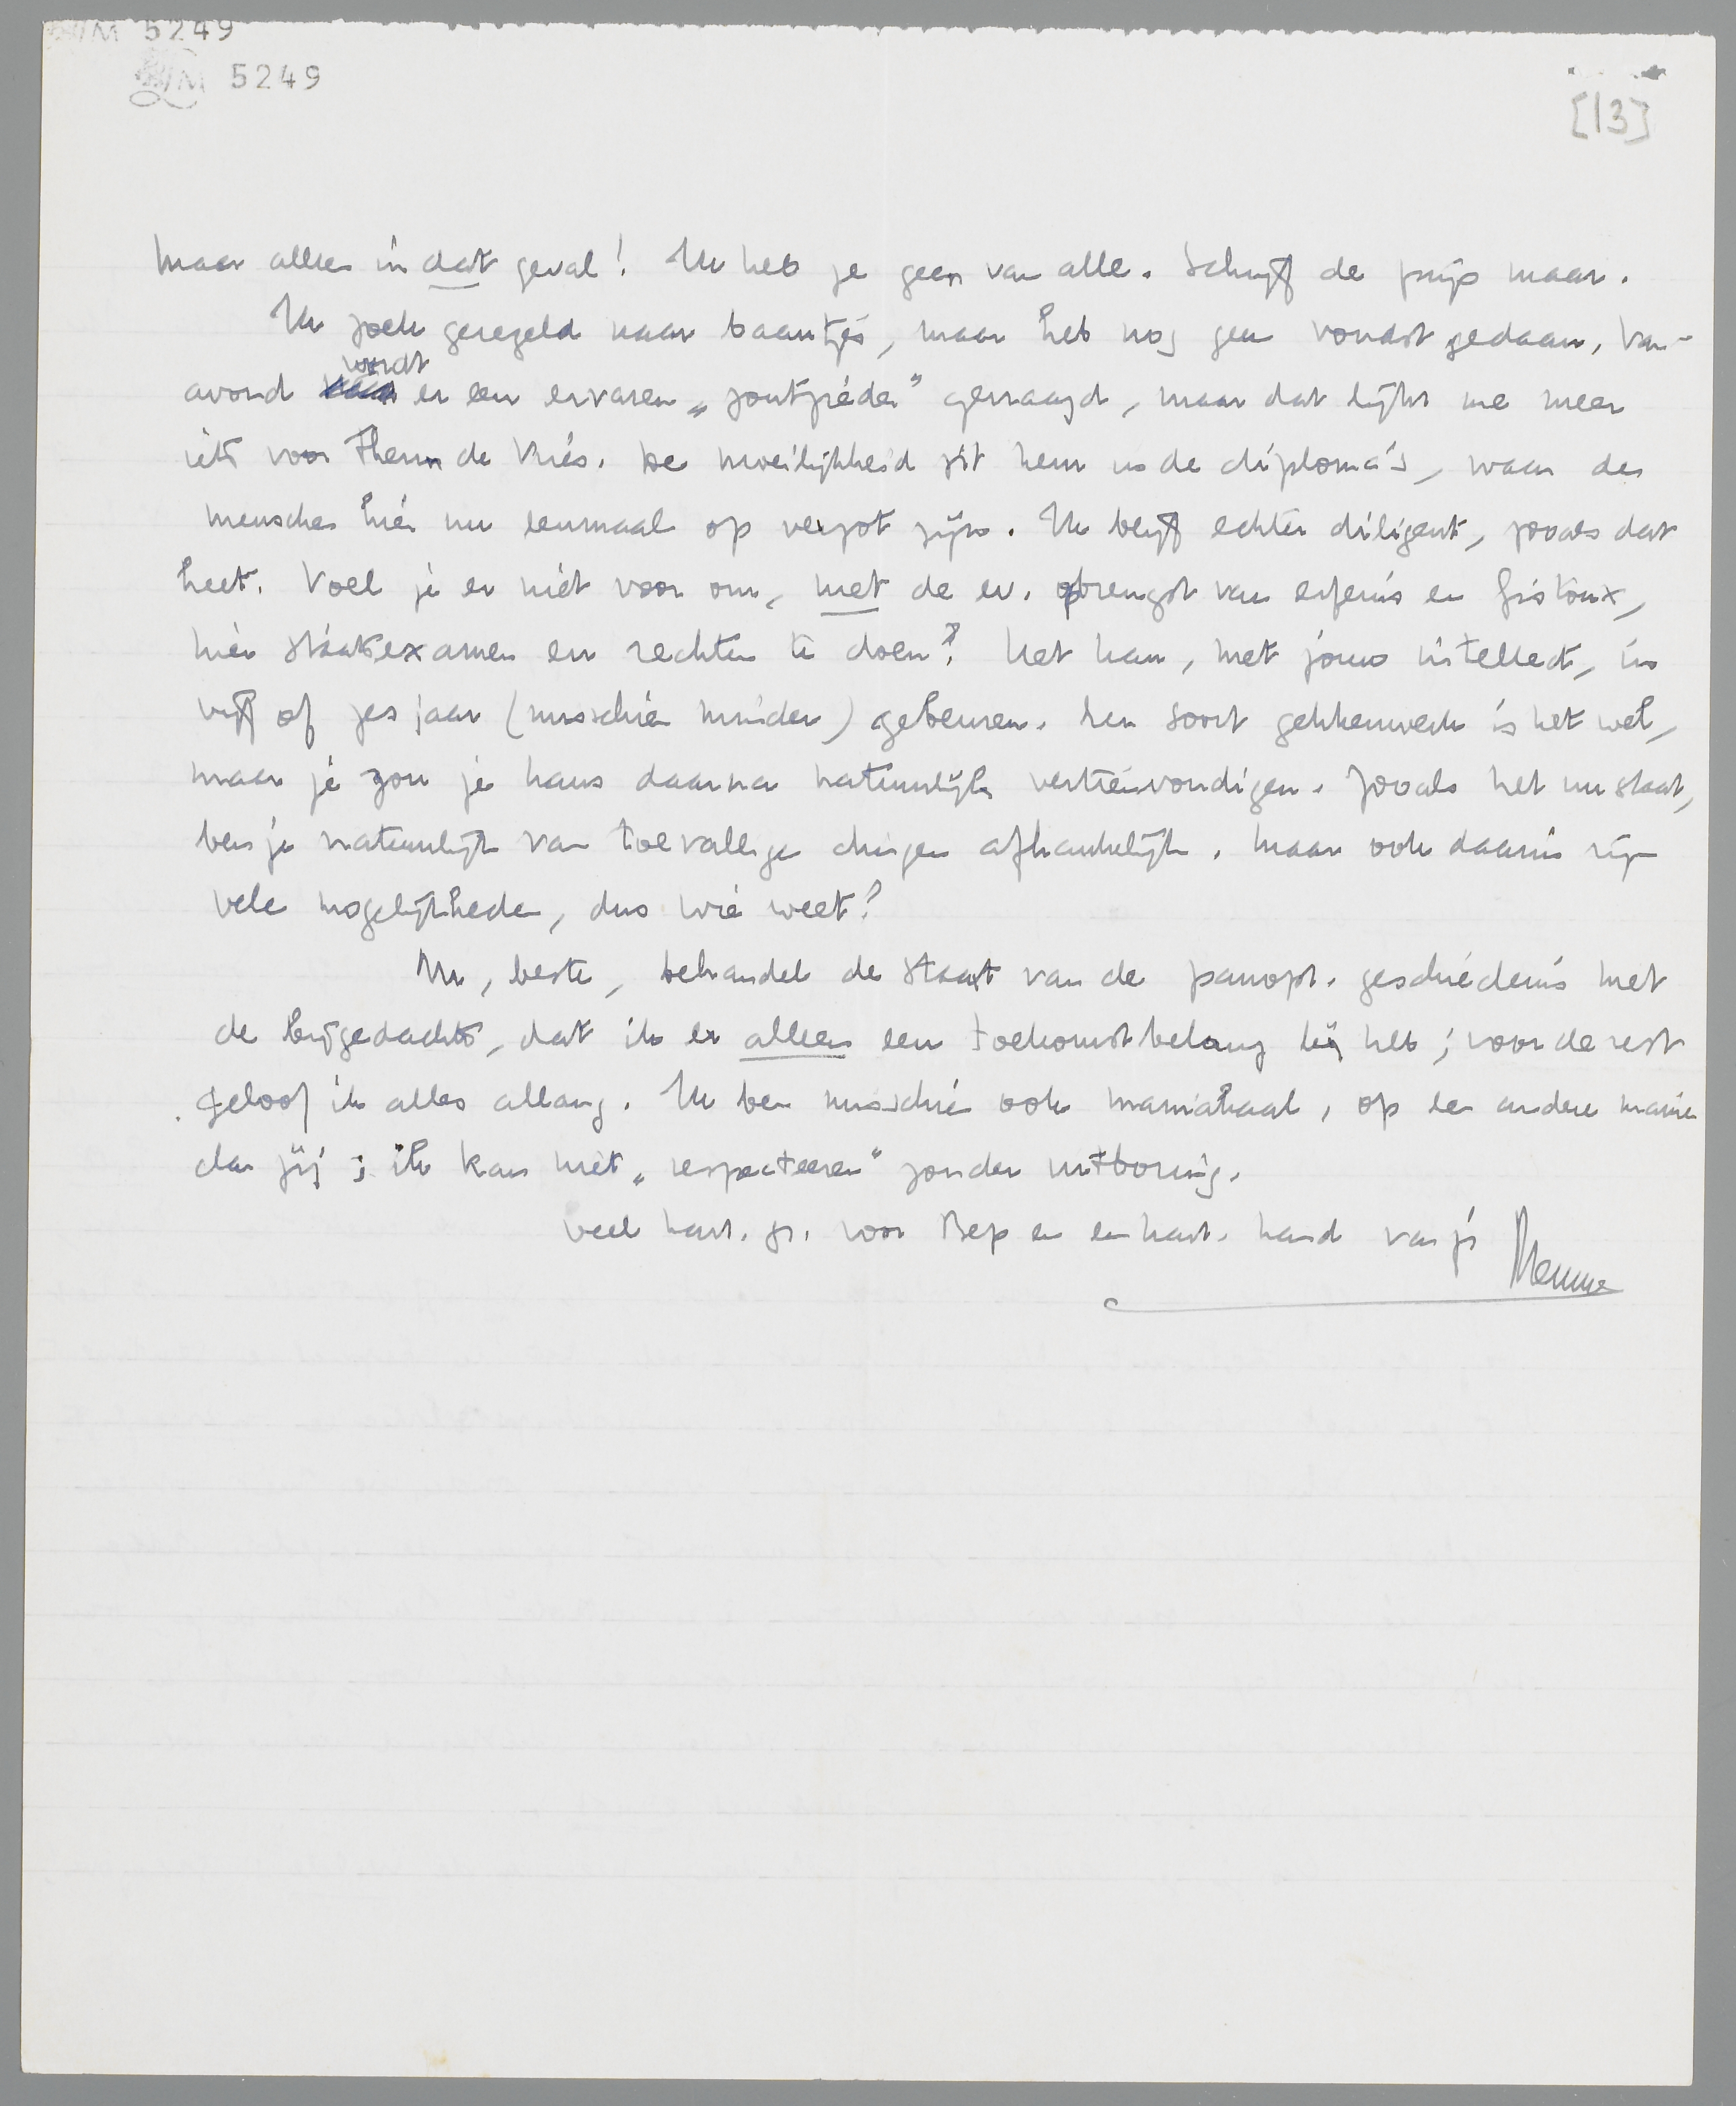 M 5249
M 5249
[13]
maar alleen in dat geval! Ik heb je geen van alle. Schrijf de prijs maar.
Ik zoek geregeld naar baantjes, maar heb nog geen vondst gedaan, Van-
avond wordt er een ervaren „zoutzieder" gevraagd, maar dat lijkt me meer
iets voor Theun de Vries. De moeilijkheid zit hem in de diploma's, waar de
menschen hier nu eenmaal op verzot zijn. Ik blijf echter diligent, zooals dat
heet. Voel je er niet voor om, met de ev. opbrengst van erfenis en Gistoux,
hier staatsexamen en rechten te doen? Het kan, met jouw intellect, in
vijf of zes jaar (misschien minder) gebeuren. Een soort gekkenwerk is het wel,
maar je zou je kans daarna natuurlijk vertienvoudigen. Zooals het nu staat,
ben je natuurlijk van toevallige dingen afhankelijk. Maar ook daarin zijn
vele mogelijkheden, dus wie weet?
Nu, beste, behandel de staart van de panopt. geschiedenis met
de bijgedachte, dat ik er alleen een toekomstbelang bij heb; voor de rest
geloof ik alles allang. Ik ben misschien ook maniakaal, op een andere manier
dan jij; ik kan niet „respecteeren" zonder uitboring.
Veel hart. gr. voor Bep en een hart. hand van je
Menno